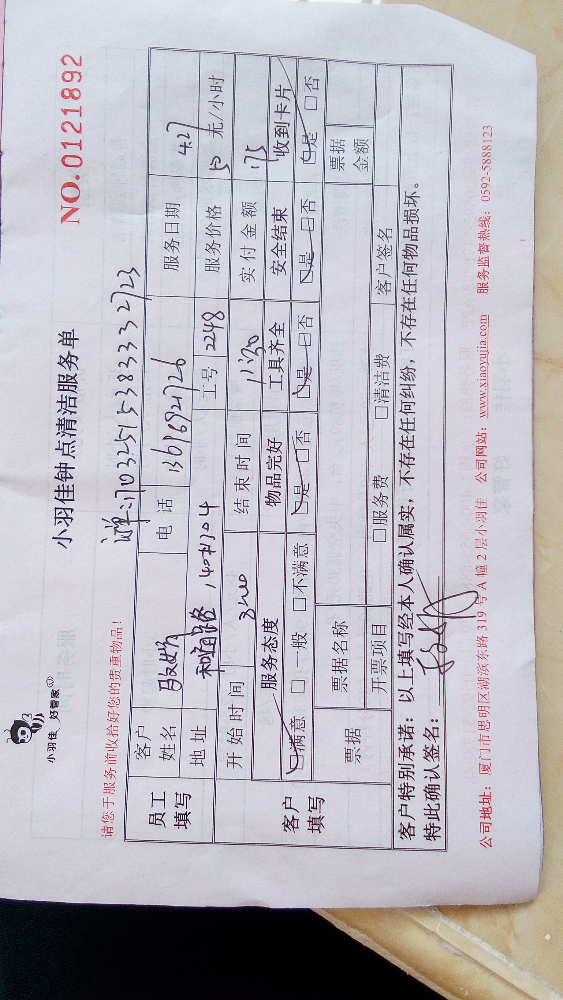 小羽佳 好管家
小羽佳钟点清洁服务单
NO.0121892
请您于服务前收拾好您的贵重物品！
员工填写
客户姓名
电话
服务日期 4.27
地址
工号 2248
服务价格 50 元/小时
客户填写
开始时间
结束时间 11:30
实付金额 175
服务态度 物品完好 工具齐全 安全结束 收到卡片
□满意 □一般 □不满意 □是 □否 □是 □否 □是 □否 □是 □否
票据 票据名称 票据金额
开票项目 □服务费 □清洁费 客户签名
客户特别承诺：以上填写经本人确认属实，不存在任何纠纷，不存在任何物品损坏。
特此确认签名：
公司地址：厦门市思明区湖滨东路 319 号 A 幢 2 层小羽佳 公司网站：www.xiaoyujia.com 服务监督热线：0592-5888123